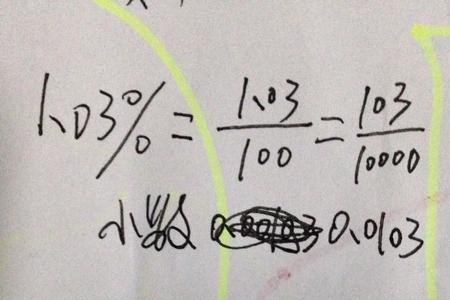 1.03% = 1.03/100 = 103/10000
小数 0.0103